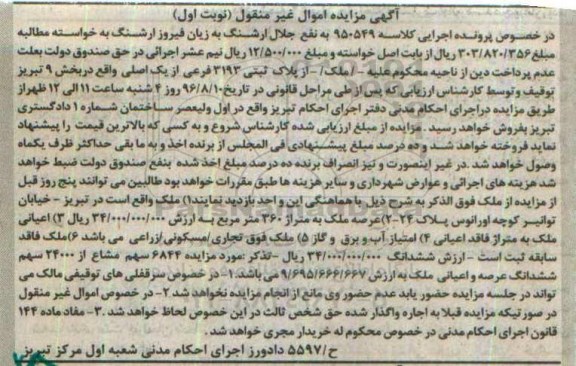 آگهی مزایده اموال غیر منقول (نوبت اول)
در خصوص پرونده اجرایی کلاسه ۹۵۰۵۴۹ به نفع جلال ارشنگ به زیان فیروز ارشنگ به خواسته مطالبه
مبلغ ۳۰۳/۸۲۰/۳۵۶ ریال از بابت اصل خواسته و مبلغ ۱۲/۵۰۰/۰۰۰ ریال نیم عشر اجرائی در حق صندوق دولت بعلت
عدم پرداخت دین از ناحیه محکوم علیه - /ملک/- از پلاک ثبتی ۳۱۹۳ فرعی از یک اصلی واقع دربخش ۹ تبریز
توقیف و توسط کارشناس ارزیابی که پس از طی مراحل قانونی در تاریخ ۹۶/۸/۱۰ روز ۴ شنبه ساعت ۱۱ الی ۱۲ ظهر از
طریق مزایده دراجرای احکام مدنی دفتر اجرای احکام تبریز واقع در اول ولیعصر ساختمان شماره ۱ دادگستری
تبریز بفروش خواهد رسید . مزایده از مبلغ ارزیابی شده کارشناس شروع و به کسی که بالاترین قیمت را پیشنهاد
نماید فروخته خواهد شد و ده درصد مبلغ پیشنهادی فی المجلس از برنده اخذ و به ما بقی حداکثر ظرف یکماه
وصول خواهد شد .در غیر اینصورت و نیز انصراف برنده ده درصد مبلغ اخذ شده بنفع صندوق دولت ضبط خواهد
شد هزینه های اجرائی و عوارض شهرداری و سایر هزینه ها طبق مقررات خواهد بود طالبین می توانند پنج روز قبل
از مزایده از ملک فوق الذکر به شرح ذیل با هماهنگی این واحد بازدید نمایند۱) ملک واقع است در تبریز - خیابان
توانیر کوچه اورانوس پلاک ۲۴-۲)عرصه ملک به متراژ ۳۶۰ متر مربع به ارزش ۳۴/۰۰۰/۰۰۰/۰۰۰ ریال ۳) اعیانی
ملک به متراژ فاقد اعیانی ۴) امتیاز آب و برق و گاز ۵) ملک فوق تجاری/مسکونی/زراعی می باشد ۶)ملک فاقد
سابقه ثبت است - ارزش ششدانگ ۳۴/۰۰۰/۰۰۰/۰۰۰ ریال -تذکر :مورد مزایده ۶۸۴۴ سهم مشاع از ۲۴۰۰۰ سهم
ششدانگ عرصه و اعیانی ملک به ارزش ۹/۶۹۵/۶۶۶/۶۶۷ می باشد.۱- در خصوص سرقفلی های توقیفی مالک می
تواند در جلسه مزایده حضور یابد عدم حضور وی مانع از انجام مزایده نخواهد شد ۲- در خصوص اموال غیر منقول
در صورتیکه مزایده قبلا به اجاره واگذار شده حق شخص ثالث در این خصوص لحاظ خواهد شد .۳- مفاد ماده ۱۴۴
قانون اجرای احکام مدنی در خصوص محکوم له خریدار مجری خواهد شد.
ح/۵۵۹۷ دادورز اجرای احکام مدنی شعبه اول مرکز تبریز